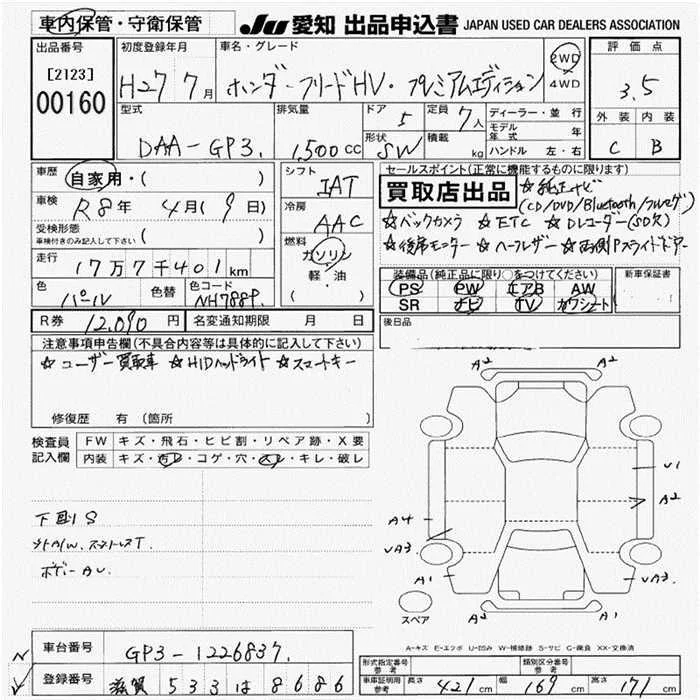 車内保管・守衛保管
JU 愛知 出品申込書 JAPAN USED CAR DEALERS ASSOCIATION
出品番号
[2123]
00160
初度登録年月
H27 7月
車名・グレード
ホンダ・フリードHV・プレミアムエディション
2WD
4WD
評価点
3.5
外装 内装
C B
型式
DAA-GP3.
排気量
1,500 CC
ドア
5
形状
SW
定員
7人
積載
kg
ディーラー・並行
モデル年式 年
ハンドル 左・右
車歴
自家用・( )
車検
R8年 4月(9日)
受検形態
車検付きのみ記入して下さい ( )
走行
17万7千401km
色
パール
色替
色コード
NH788P
シフト
IAT
冷房
AAC
燃料
ガソリン
・
軽・油
( )
セールスポイント(正常に機能するものに限ります)
買取店出品 ☆純正ナビ
(CD/DVD/Bluetooth/フルセグ)
☆バックカメラ ☆ETC ☆Dレコーダー(SD欠)
☆後席モニター ☆ハーフレザー ☆両側Pスライドドア
装備品(純正品に限り○をつけてください)
PS PW エアB AW
SR ナビ TV カワシート
新車保証書
後日品
R券 12,090円
名変通知期限 月 日
注意事項申告欄(不具合内容等は具体的に記入して下さい)
☆ユーザー買取車 ☆HIDヘッドライト ☆スマートキー
修復歴 有 (箇所 )
検査員
記入欄
FW キズ・飛石・ヒビ割・リペア跡・X要
内装 キズ・汚レ・コゲ・穴・スレ・キレ・破レ
下廻りS
ボデーAU.
A2 A2
U1
A2
A4
UA3
A1
UA3
A2 A1
スペア
A-キズ E-エクボ U-凹み W-補修跡 S-サビ C-腐食 XX-交換済
車台番号
GP3-1226837.
登録番号
滋賀 533 は 8686
形式指定番号
参考
類別区分番号
参考
車庫証明用
参考
長さ 421cm 幅 169cm 高さ 171cm